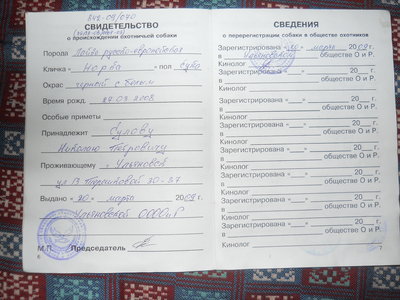 848-09/040
СВИДЕТЕЛЬСТВО
о происхождении охотничьей собаки
Порода Лайка русско-европейская
Кличка Норва пол сука
Окрас черный с белым
Время рожд. 24.03.2008
Особые приметы
Принадлежит Сулову
Николаю Петровичу
Проживающему г. Ульяновск
ул В. 30-37
Выдано «20» марта 2009 г.
Ульяновской ОООиР
М.П. Председатель
6
СВЕДЕНИЯ
о перерегистрации собаки в обществе охотников
Зарегистрирована «20» марта 2009 г.
в Ульяновском обществе О и Р.
Кинолог
Зарегистрирована «___» 20___ г.
в обществе О и Р.
Кинолог
Зарегистрирована «___» 20___ г.
в обществе О и Р.
Кинолог
Зарегистрирована «___» 20___ г.
в обществе О и Р.
Кинолог
Зарегистрирована «___» 20___ г.
в обществе О и Р.
Кинолог
Зарегистрирована «___» 20___ г.
в обществе О и Р.
Кинолог
7